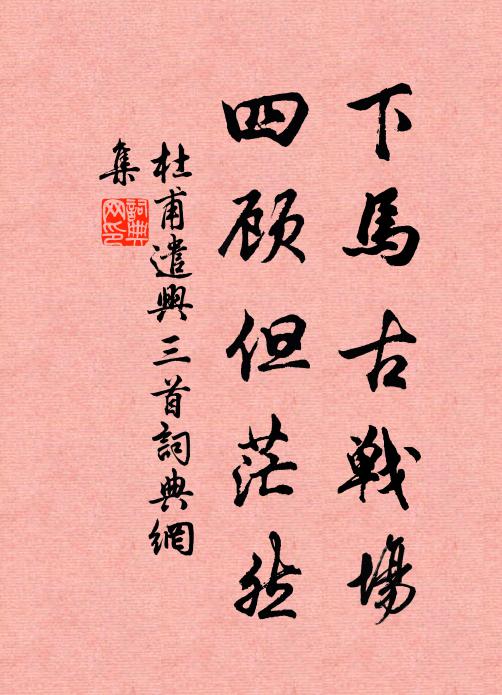 下馬古戰場
四顾但茫然
杜甫遣興三首詞典網
集
詞典
网印